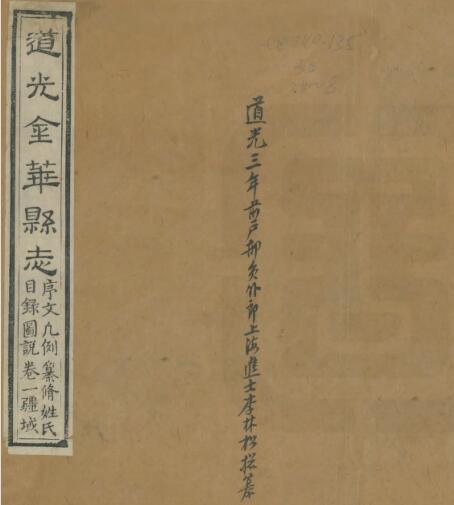 道光金華縣志
序文凡例纂脩姓氏
目錄圖說卷一疆域
道光三年前戶部員外郎上海進士李林松総纂